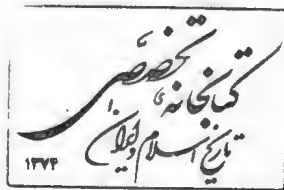 کتابخانهٔ تخصصی
تاریخ اسلام و ایران
۱۳۷۴